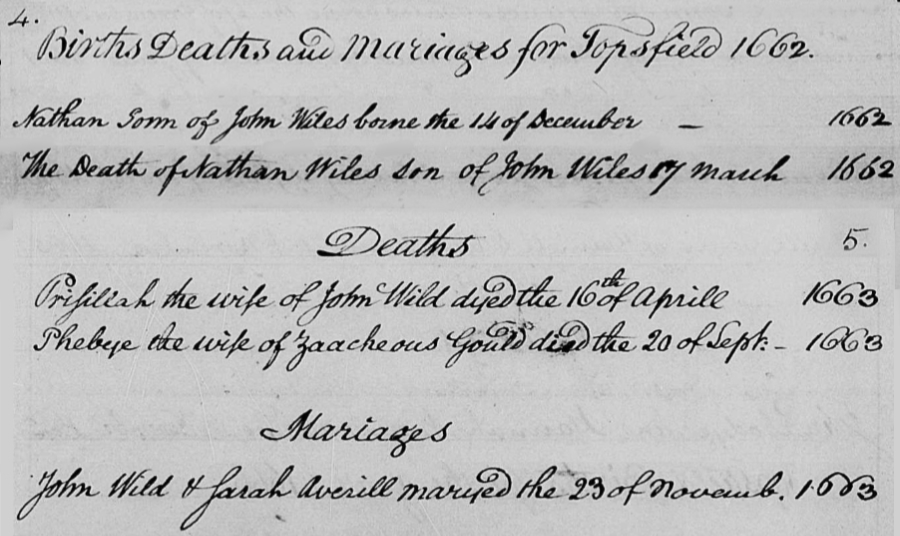 4.
Births Deaths and Mariages for Topsfield 1662.
Nathan Sonn of John Wiles borne the 14 of December — 1662
The Death of Nathan Wiles son of John Wiles 17 march 1662
Deaths 5.
Prisillah the wife of John Wild dyed the 16th of Aprill 1663
Phebye the wife of Zaacheous Gould died the 20 of Sept: - 1663
Mariages
John Wild & Sarah Averill maryed the 23 of Novemb. 1663